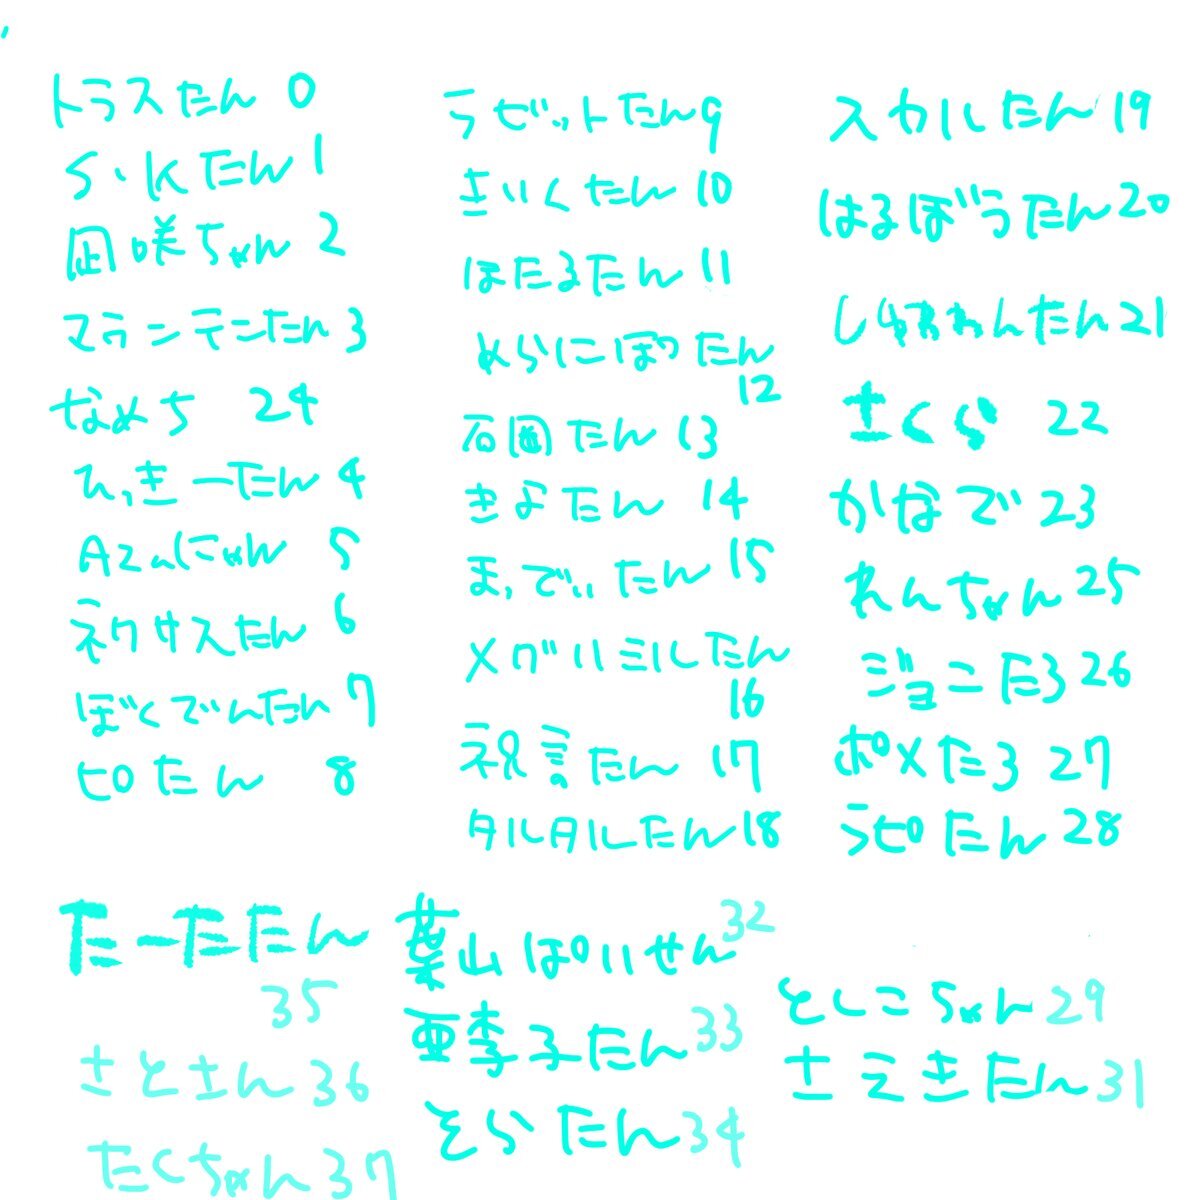 トラスたん 0
S・Kたん 1
凪咲ちゃん 2
マウンテンたん 3
なめち 24
ひっきーたん 4
Azuにゃん 5
ネクサスたん 6
ぼくでんたん 7
ピロたん 8
ラビットたん 9
さいくたん 10
ほたるたん 11
めらにぽったん
12
石岡たん 13
きよたん 14
まっでぃたん 15
メグハミルたん
16
祝言たん 17
タルタルたん 18
スカルたん 19
はるぼうたん 20
たん 21
さくら 22
かなで 23
れんちゃん 25
ジョニたろ 26
ポメたろ 27
ラピたん 28
たーたたん
35
さとさん 36
たくちゃん 37
葉山ぱいせん 32
亜李子たん 33
そらたん 34
としこちゃん 29
さえきたん 31